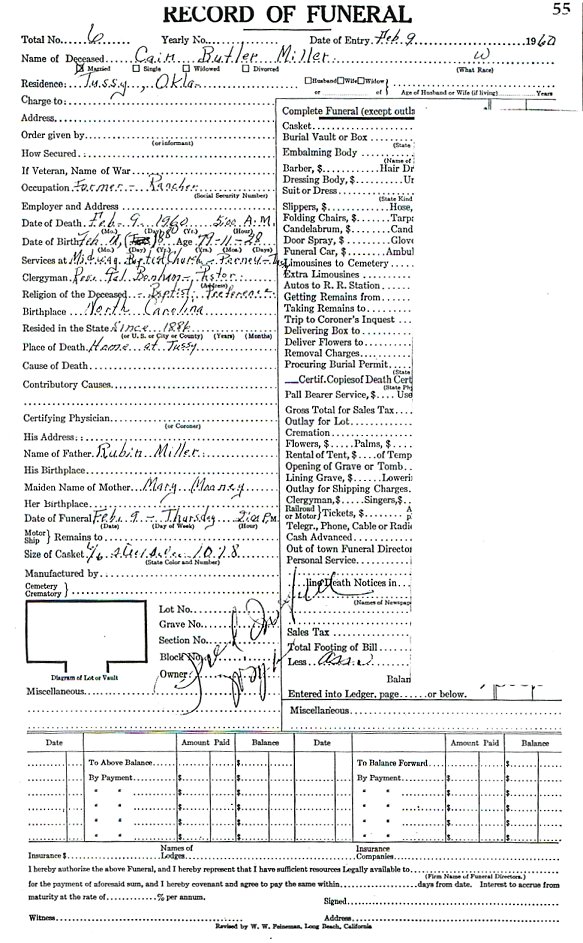 RECORD OF FUNERAL
55
Total No. 6 Yearly No. Date of Entry Feb 9 1960
Name of Deceased Cain Butler Miller W
Married Single Widowed Divorced (What Race)
Residence: Tussy, Okla. Husband Wife Widow
or of Age of Husband or Wife (if living) Years
Charge to:
Address
Order given by
(or informant)
How Secured
If Veteran, Name of War
Occupation Farmer - Rancher
(Social Security Number)
Employer and Address
Date of Death Feb. 9, 1960 5:00 A.M.
(Mo.) (Day) (Yr.) (Hour)
Date of Birth Feb 1880 Age 79-11-28
(Mo.) (Day) (Yr.) (Yrs.) (Mos.) (Days)
Services at Baptist Church
(Address)
Clergyman Bonham - Pastor
Religion of the Deceased Baptist Preference
Birthplace North Carolina
Resided in the State Since 1886
(or U. S. or City or County) (Years) (Months)
Place of Death Home at Tussy
Cause of Death
Contributory Causes
Certifying Physician
(or Coroner)
His Address
Name of Father Rubin Miller
His Birthplace
Maiden Name of Mother Mary Mooney
Her Birthplace
Date of Funeral Feb. 9 - Thursday 2:00 P.M.
(Date) (Day of Week) (Hour)
Motor
Ship } Remains to
Size of Casket 6/6 1018
(State Color and Number)
Manufactured by
Cemetery
Crematory }
Lot No.
Grave No.
Section No.
Block No.
Owner
Diagram of Lot or Vault
Miscellaneous
Complete Funeral (except outla
Casket
Burial Vault or Box
(State
Embalming Body
(Name of
Barber, $ Hair Dr
Dressing Body, $ Ur
Suit or Dress
(State Kind
Slippers, $ Hose,
Folding Chairs, $ Tarp
Candelabrum, $ Cand
Door Spray, $ Glove
Funeral Car, $ Ambul
Limousines to Cemetery
Extra Limousines
Autos to R. R. Station
Getting Remains from
Taking Remains to
Trip to Coroner's Inquest
Delivering Box to
Deliver Flowers to
Removal Charges
Procuring Burial Permit
(State
Certif. Copies of Death Cert
(State Ph
Pall Bearer Service, $ Use
Gross Total for Sales Tax
Outlay for Lot
Cremation
Flowers, $ Palms, $
Rental of Tent, $ of Temp
Opening of Grave or Tomb
Lining Grave, $ Loweri
Outlay for Shipping Charges
Clergyman, $ Singers, $
Railroad
or Motor } Tickets, $
Telegr., Phone, Cable or Radi
Cash Advanced
Out of town Funeral Director
Personal Service
ling Death Notices in
(Names of Newspap
Sales Tax
Total Footing of Bill
Less
Balan
Entered into Ledger, page or below.
Miscellaneous
Date Amount Paid Balance Date Amount Paid Balance
To Above Balance $ To Balance Forward $
By Payment $ $ By Payment $ $
" " $ $ " " $ $
" " $ $ " " $ $
" " $ $ " " $ $
" " $ $ " " $ $
Insurance $ Names of Lodges Insurance Companies
I hereby authorize the above Funeral, and I hereby represent that I have sufficient resources Legally available to
(Firm Name of Funeral Directors.)
for the payment of aforesaid sum, and I hereby covenant and agree to pay the same within days from date. Interest to accrue from
maturity at the rate of % per annum. Signed
Witness Address
Revised by W. W. Feineman, Long Beach, California